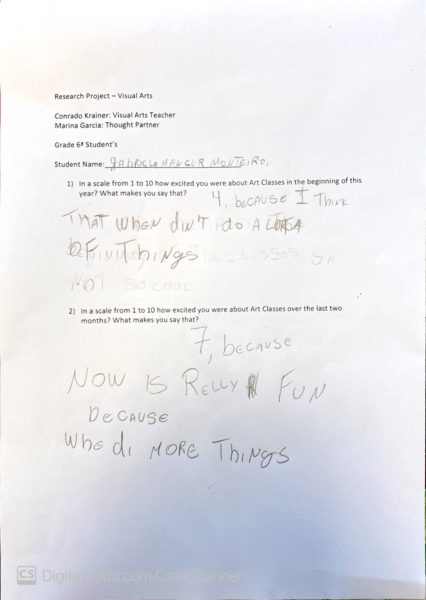 Research Project – Visual Arts
Conrado Krainer: Visual Arts Teacher
Marina Garcia: Thought Partner
Grade 6ª Student's
Student Name: GABRIELA MANSUR MONTEIRO,
1) In a scale from 1 to 10 how excited you were about Art Classes in the beginning of this
year? What makes you say that? 4, because I Think
THAT when dwt do A
OF Things classes
NOT SO cool
2) In a scale from 1 to 10 how excited you were about Art Classes over the last two
months? What makes you say that?
7, because
NOW IS RELLY FUN
because
Whe di MORE Things
CS Digitalizada com CamScanner